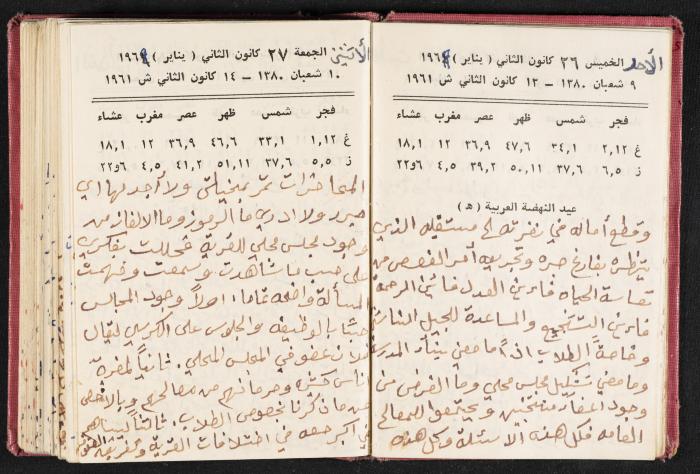 الأحد الخميس ٢٦ كانون الثاني ( يناير ) ١٩٦٩
٩ شعبان ١٣٨٠ – ١٣ كانون الثاني ش ١٩٦١
فجر شمس ظهر عصر مغرب عشاء
غ ٢,١٢ ٣٤,١ ٤٧,٦ ٣٦,٩ ١٢ ١٨,١
ز ٦,٥ ٣٧,٦ ٥٠,١١ ٣٩,٢ ٤,٥ ٢٢و٦
عيد النهضة العربية ( ه )
وقطع أماله في نظرته لمستقبله الذي
ينظره بفارغ صبره وتجريعه أمر القصص من
تعاسة الحياه فأين العدل فأين الرحمة
فأين التشجيع والمساعدة للجيل الناشئ
وخاصةً الطلاب اذاً ما معنى بناء المدرسة
وما معنى تشكيل مجلس محلي وما الغرض من
وجود منتخبين ويجتمعوا للمصالح
العامه فكل هذه الاسئلة وكل هذه
الأثنين الجمعة ٢٧ كانون الثاني ( يناير ) ١٩٦٩
١٠ شعبان ١٣٨٠ – ١٤ كانون الثاني ش ١٩٦١
فجر شمس ظهر عصر مغرب عشاء
غ ١,١٢ ٣٣,١ ٤٦,٦ ٣٦,٩ ١٢ ١٨,١
ز ٥,٥ ٣٧,٦ ٥١,١١ ٤١,٢ ٤,٥ ٢٢و٦
تمر بمخيلتي ولا أجد لها اي
ولا ادري ما الرموز وما الالغاز من
وجود مجلس محلي للقرية فحللت بفكري
على حسب ما شاهدت وسمعت وفهمت
المسألة واضحه تماماً: اولاً وجود المجلس
بالوظيفه والجلوس على الكرسي ليقال
فلان عضو في المجلس المحلي. ثانياً لمضرة
اناس وحرمانهم من مصالحهم وبالأخص
من ما ذكرنا بخصوص الطلاب. ثالثاً
في اكبر حصه في اختلافات القرية